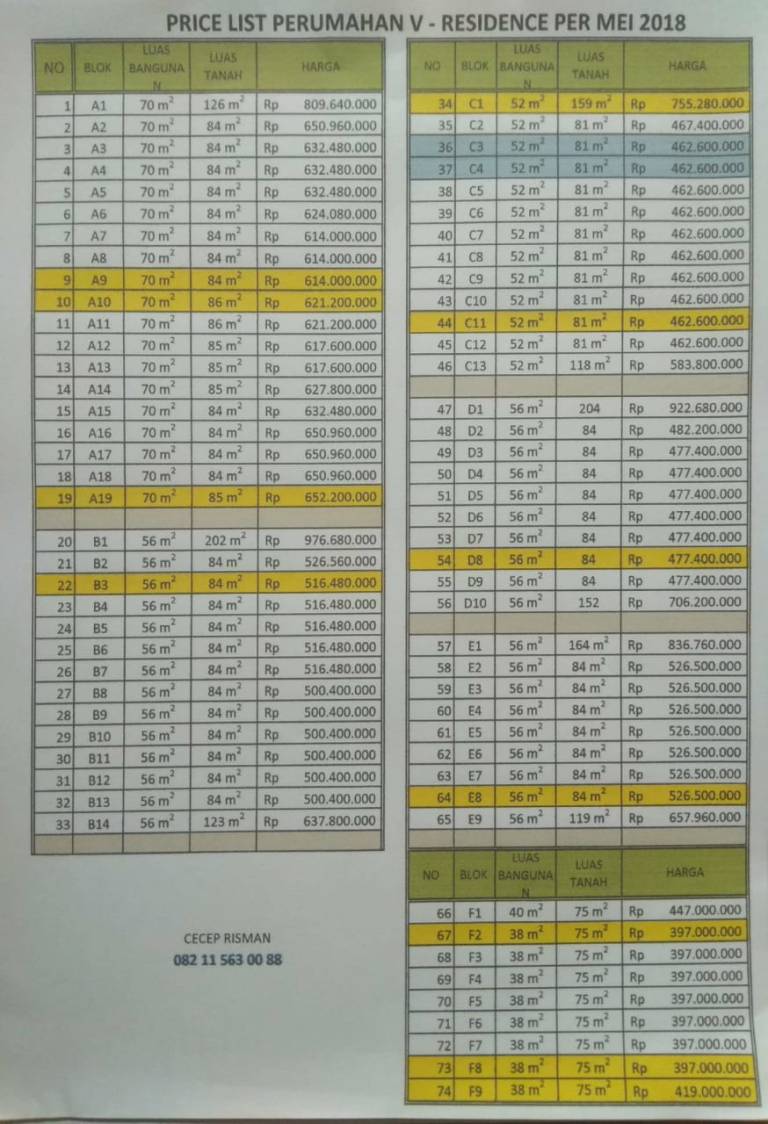 PRICE LIST PERUMAHAN V - RESIDENCE PER MEI 2018
NO BLOK LUAS BANGUNA N LUAS TANAH HARGA
1 A1 70 m² 126 m² Rp 809.640.000
2 A2 70 m² 84 m² Rp 650.960.000
3 A3 70 m² 84 m² Rp 632.480.000
4 A4 70 m² 84 m² Rp 632.480.000
5 A5 70 m² 84 m² Rp 632.480.000
6 A6 70 m² 84 m² Rp 624.080.000
7 A7 70 m² 84 m² Rp 614.000.000
8 A8 70 m² 84 m² Rp 614.000.000
9 A9 70 m² 84 m² Rp 614.000.000
10 A10 70 m² 86 m² Rp 621.200.000
11 A11 70 m² 86 m² Rp 621.200.000
12 A12 70 m² 85 m² Rp 617.600.000
13 A13 70 m² 85 m² Rp 617.600.000
14 A14 70 m² 85 m² Rp 627.800.000
15 A15 70 m² 84 m² Rp 632.480.000
16 A16 70 m² 84 m² Rp 650.960.000
17 A17 70 m² 84 m² Rp 650.960.000
18 A18 70 m² 84 m² Rp 650.960.000
19 A19 70 m² 85 m² Rp 652.200.000
20 B1 56 m² 202 m² Rp 976.680.000
21 B2 56 m² 84 m² Rp 526.560.000
22 B3 56 m² 84 m² Rp 516.480.000
23 B4 56 m² 84 m² Rp 516.480.000
24 B5 56 m² 84 m² Rp 516.480.000
25 B6 56 m² 84 m² Rp 516.480.000
26 B7 56 m² 84 m² Rp 516.480.000
27 B8 56 m² 84 m² Rp 500.400.000
28 B9 56 m² 84 m² Rp 500.400.000
29 B10 56 m² 84 m² Rp 500.400.000
30 B11 56 m² 84 m² Rp 500.400.000
31 B12 56 m² 84 m² Rp 500.400.000
32 B13 56 m² 84 m² Rp 500.400.000
33 B14 56 m² 123 m² Rp 637.800.000
CECEP RISMAN
082 11 563 00 88
NO BLOK LUAS BANGUNA N LUAS TANAH HARGA
34 C1 52 m² 159 m² Rp 755.280.000
35 C2 52 m² 81 m² Rp 467.400.000
36 C3 52 m² 81 m² Rp 462.600.000
37 C4 52 m² 81 m² Rp 462.600.000
38 C5 52 m² 81 m² Rp 462.600.000
39 C6 52 m² 81 m² Rp 462.600.000
40 C7 52 m² 81 m² Rp 462.600.000
41 C8 52 m² 81 m² Rp 462.600.000
42 C9 52 m² 81 m² Rp 462.600.000
43 C10 52 m² 81 m² Rp 462.600.000
44 C11 52 m² 81 m² Rp 462.600.000
45 C12 52 m² 81 m² Rp 462.600.000
46 C13 52 m² 118 m² Rp 583.800.000
47 D1 56 m² 204 Rp 922.680.000
48 D2 56 m² 84 Rp 482.200.000
49 D3 56 m² 84 Rp 477.400.000
50 D4 56 m² 84 Rp 477.400.000
51 D5 56 m² 84 Rp 477.400.000
52 D6 56 m² 84 Rp 477.400.000
53 D7 56 m² 84 Rp 477.400.000
54 D8 56 m² 84 Rp 477.400.000
55 D9 56 m² 84 Rp 477.400.000
56 D10 56 m² 152 Rp 706.200.000
57 E1 56 m² 164 m² Rp 836.760.000
58 E2 56 m² 84 m² Rp 526.500.000
59 E3 56 m² 84 m² Rp 526.500.000
60 E4 56 m² 84 m² Rp 526.500.000
61 E5 56 m² 84 m² Rp 526.500.000
62 E6 56 m² 84 m² Rp 526.500.000
63 E7 56 m² 84 m² Rp 526.500.000
64 E8 56 m² 84 m² Rp 526.500.000
65 E9 56 m² 119 m² Rp 657.960.000
NO BLOK LUAS BANGUNA N LUAS TANAH HARGA
66 F1 40 m² 75 m² Rp 447.000.000
67 F2 38 m² 75 m² Rp 397.000.000
68 F3 38 m² 75 m² Rp 397.000.000
69 F4 38 m² 75 m² Rp 397.000.000
70 F5 38 m² 75 m² Rp 397.000.000
71 F6 38 m² 75 m² Rp 397.000.000
72 F7 38 m² 75 m² Rp 397.000.000
73 F8 38 m² 75 m² Rp 397.000.000
74 F9 38 m² 75 m² Rp 419.000.000